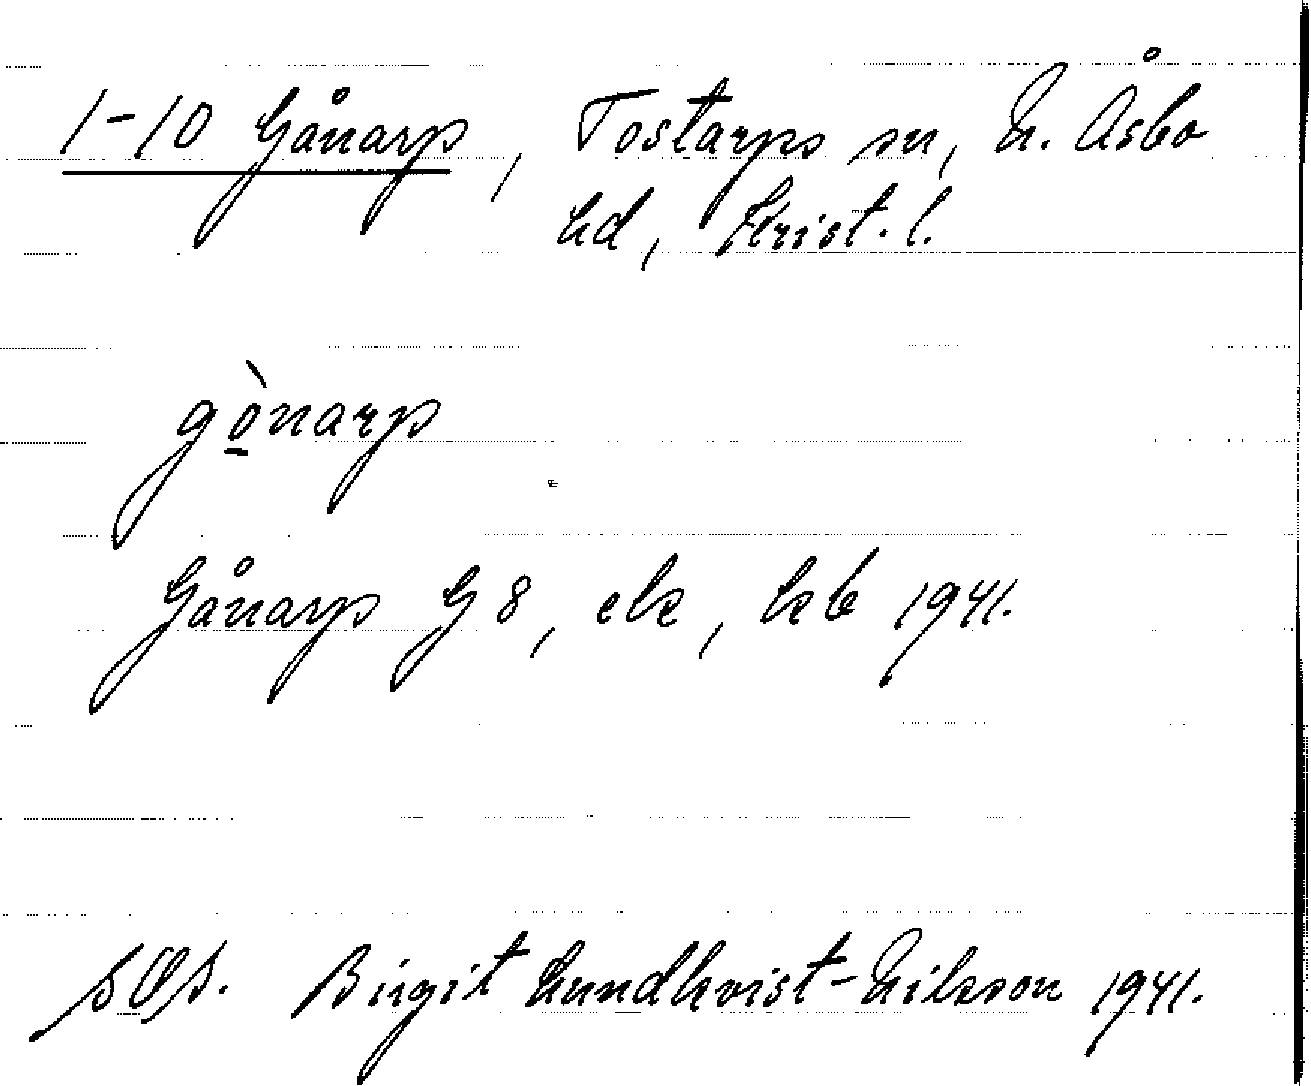 1-10 Gånarp, Tostarps sn, N. Åsbo
hd, Krist. l.
gò̱narp
Gånarp G 8, ek, kb 1941.
SOS. Birgit Lundkvist-Nilsson 1941.